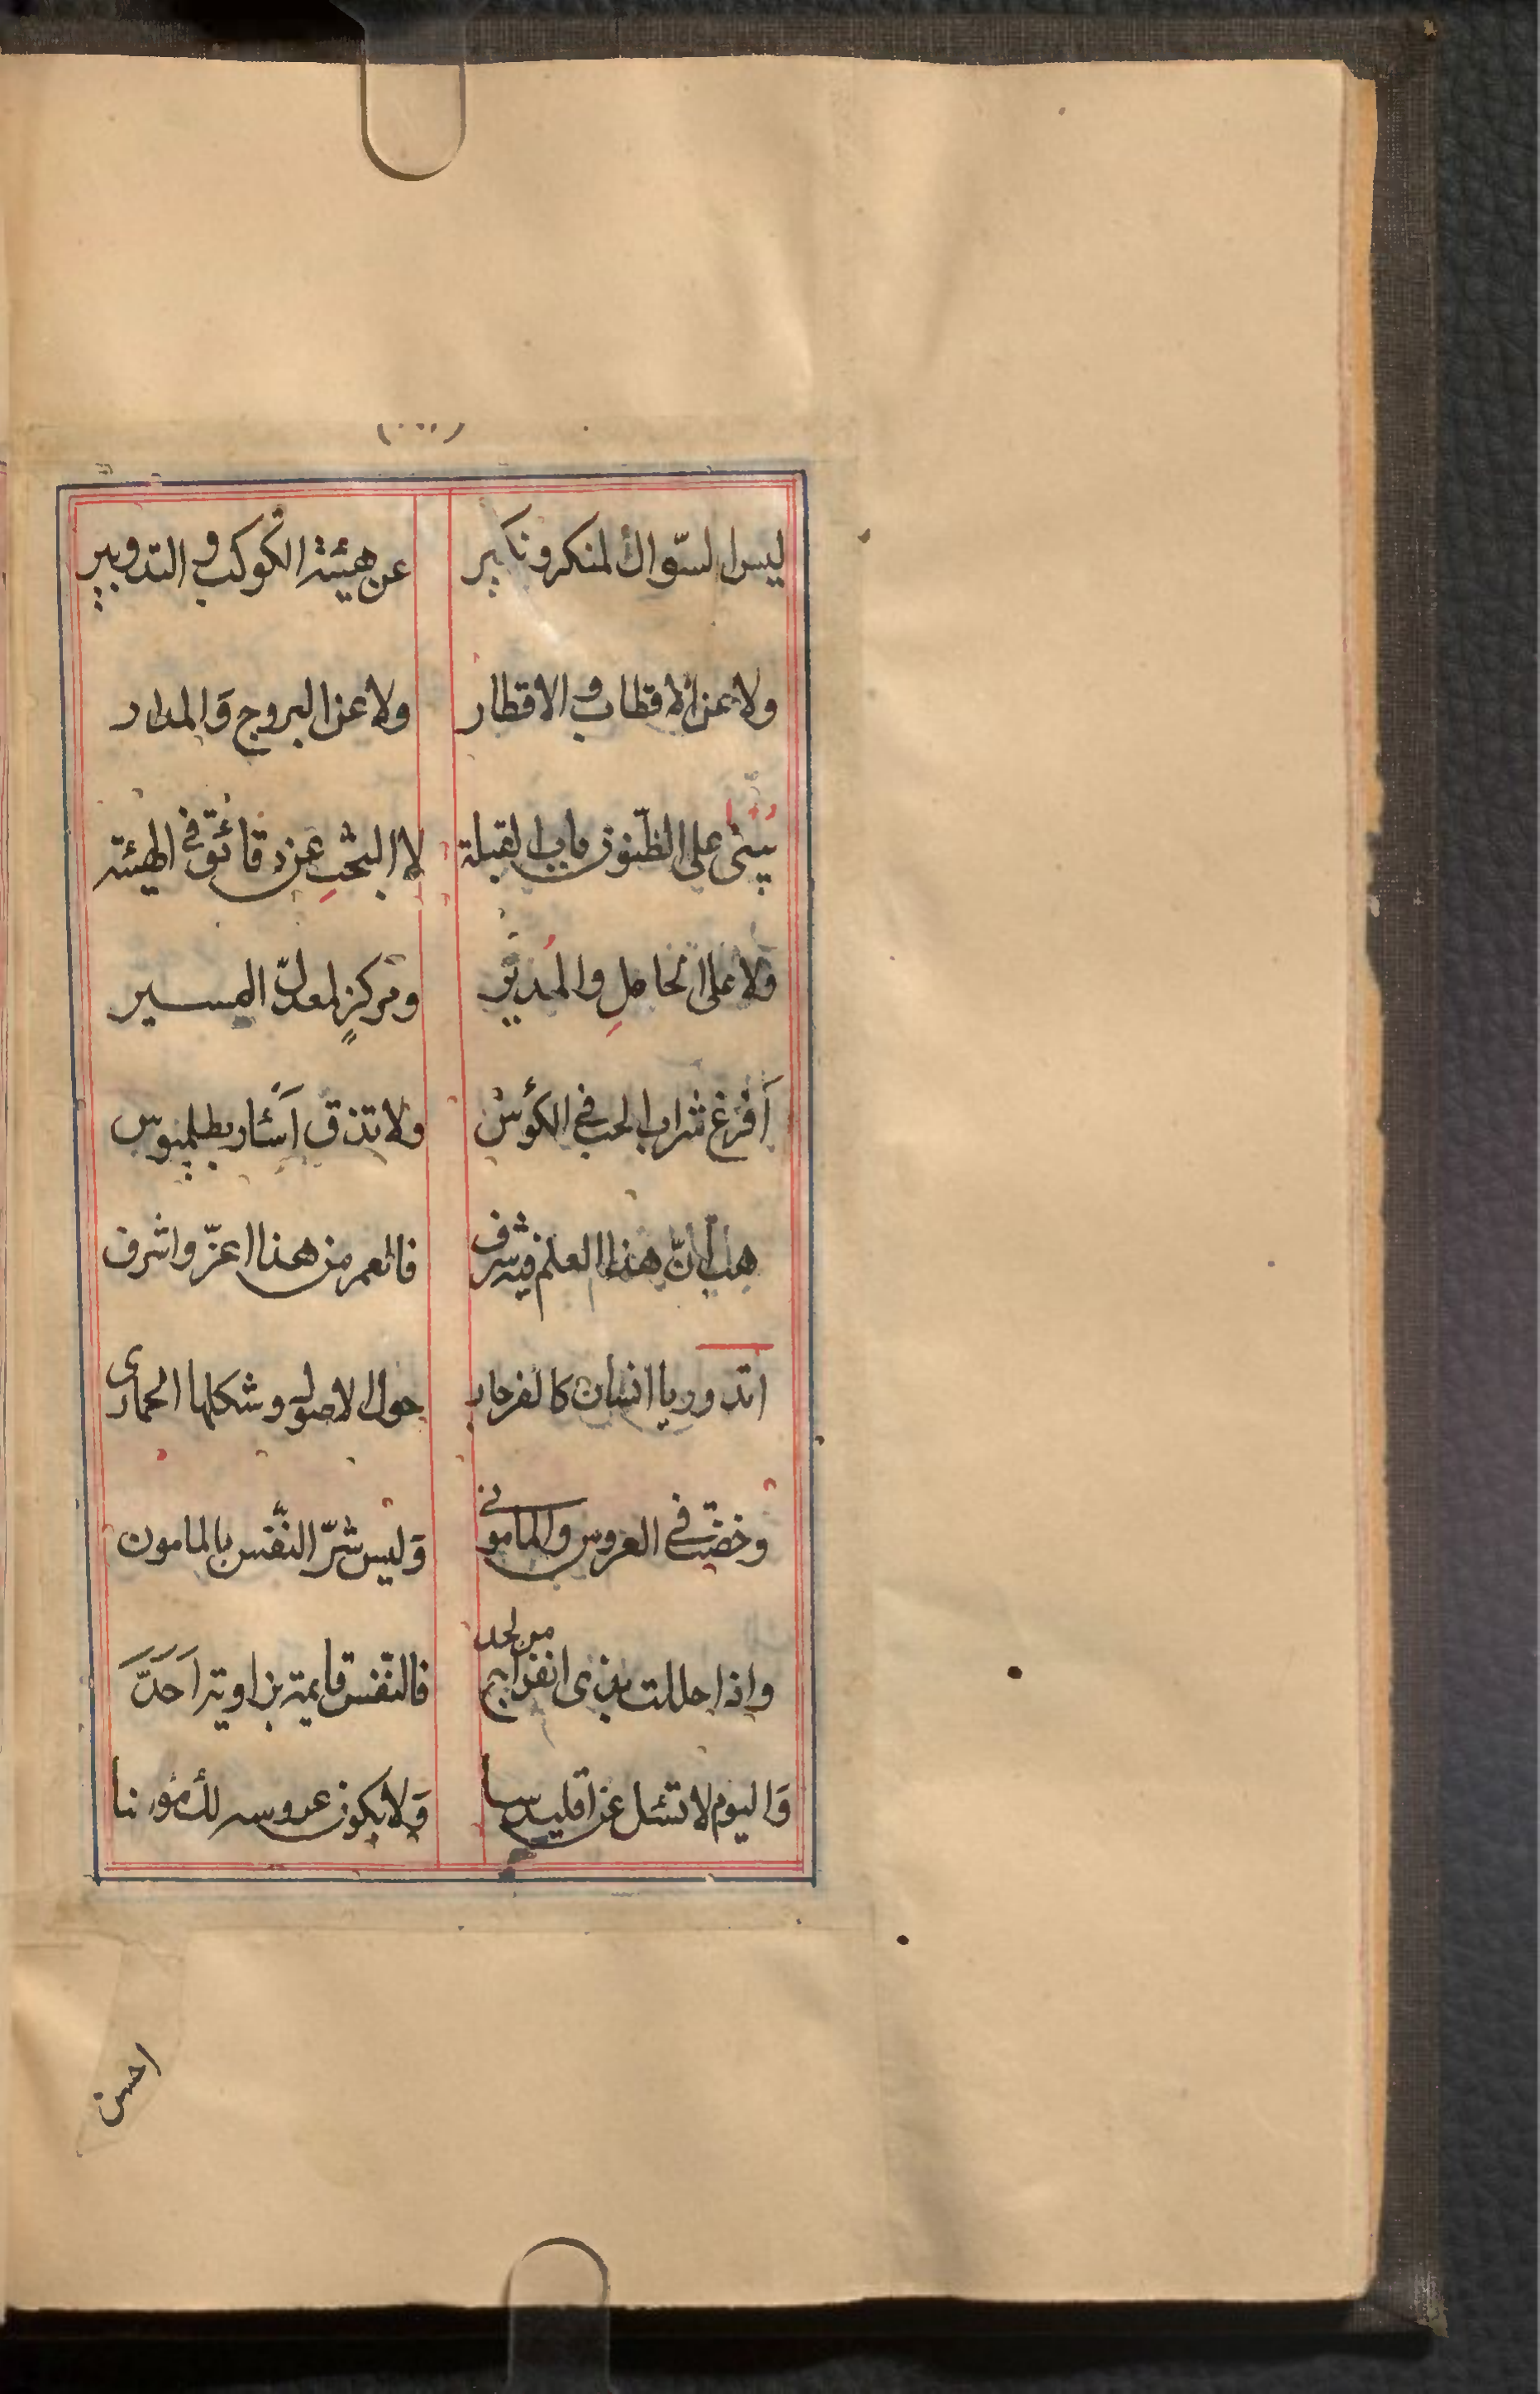 ليس السّوال لمنكر ونكير عن هيئة الكوكب والتدوير
ولا عن الاقطاب والاقطار ولا عن البروج وَالمدار
يبنى على الظّنون باب القبلة لا البحثِ عن دقائق في الهيئة
ولا على الحاملِ والمُدير ومركزٍ لمعدل المسير
أَفرغ شراب الحب في الكؤس ولا تذق آسَٔار بطلميوس
هب أنّ هذا العلم فيه شرف فالعمر من هذا اعزّ واشرف
اتدور يا انسان كالفرجار حول الاصول وشكلها الحمارى
وخضت في العروس والمامونى وَليس شرّ النّفس بالمامون
واذا حللت بذى انفراج من لحد فالنّفس قايمة بزاوية اَحَدَّ
وَاليوم لا تسٔل عن اقليدسا وَلا يكون عروسه لك مؤنسا
احسن